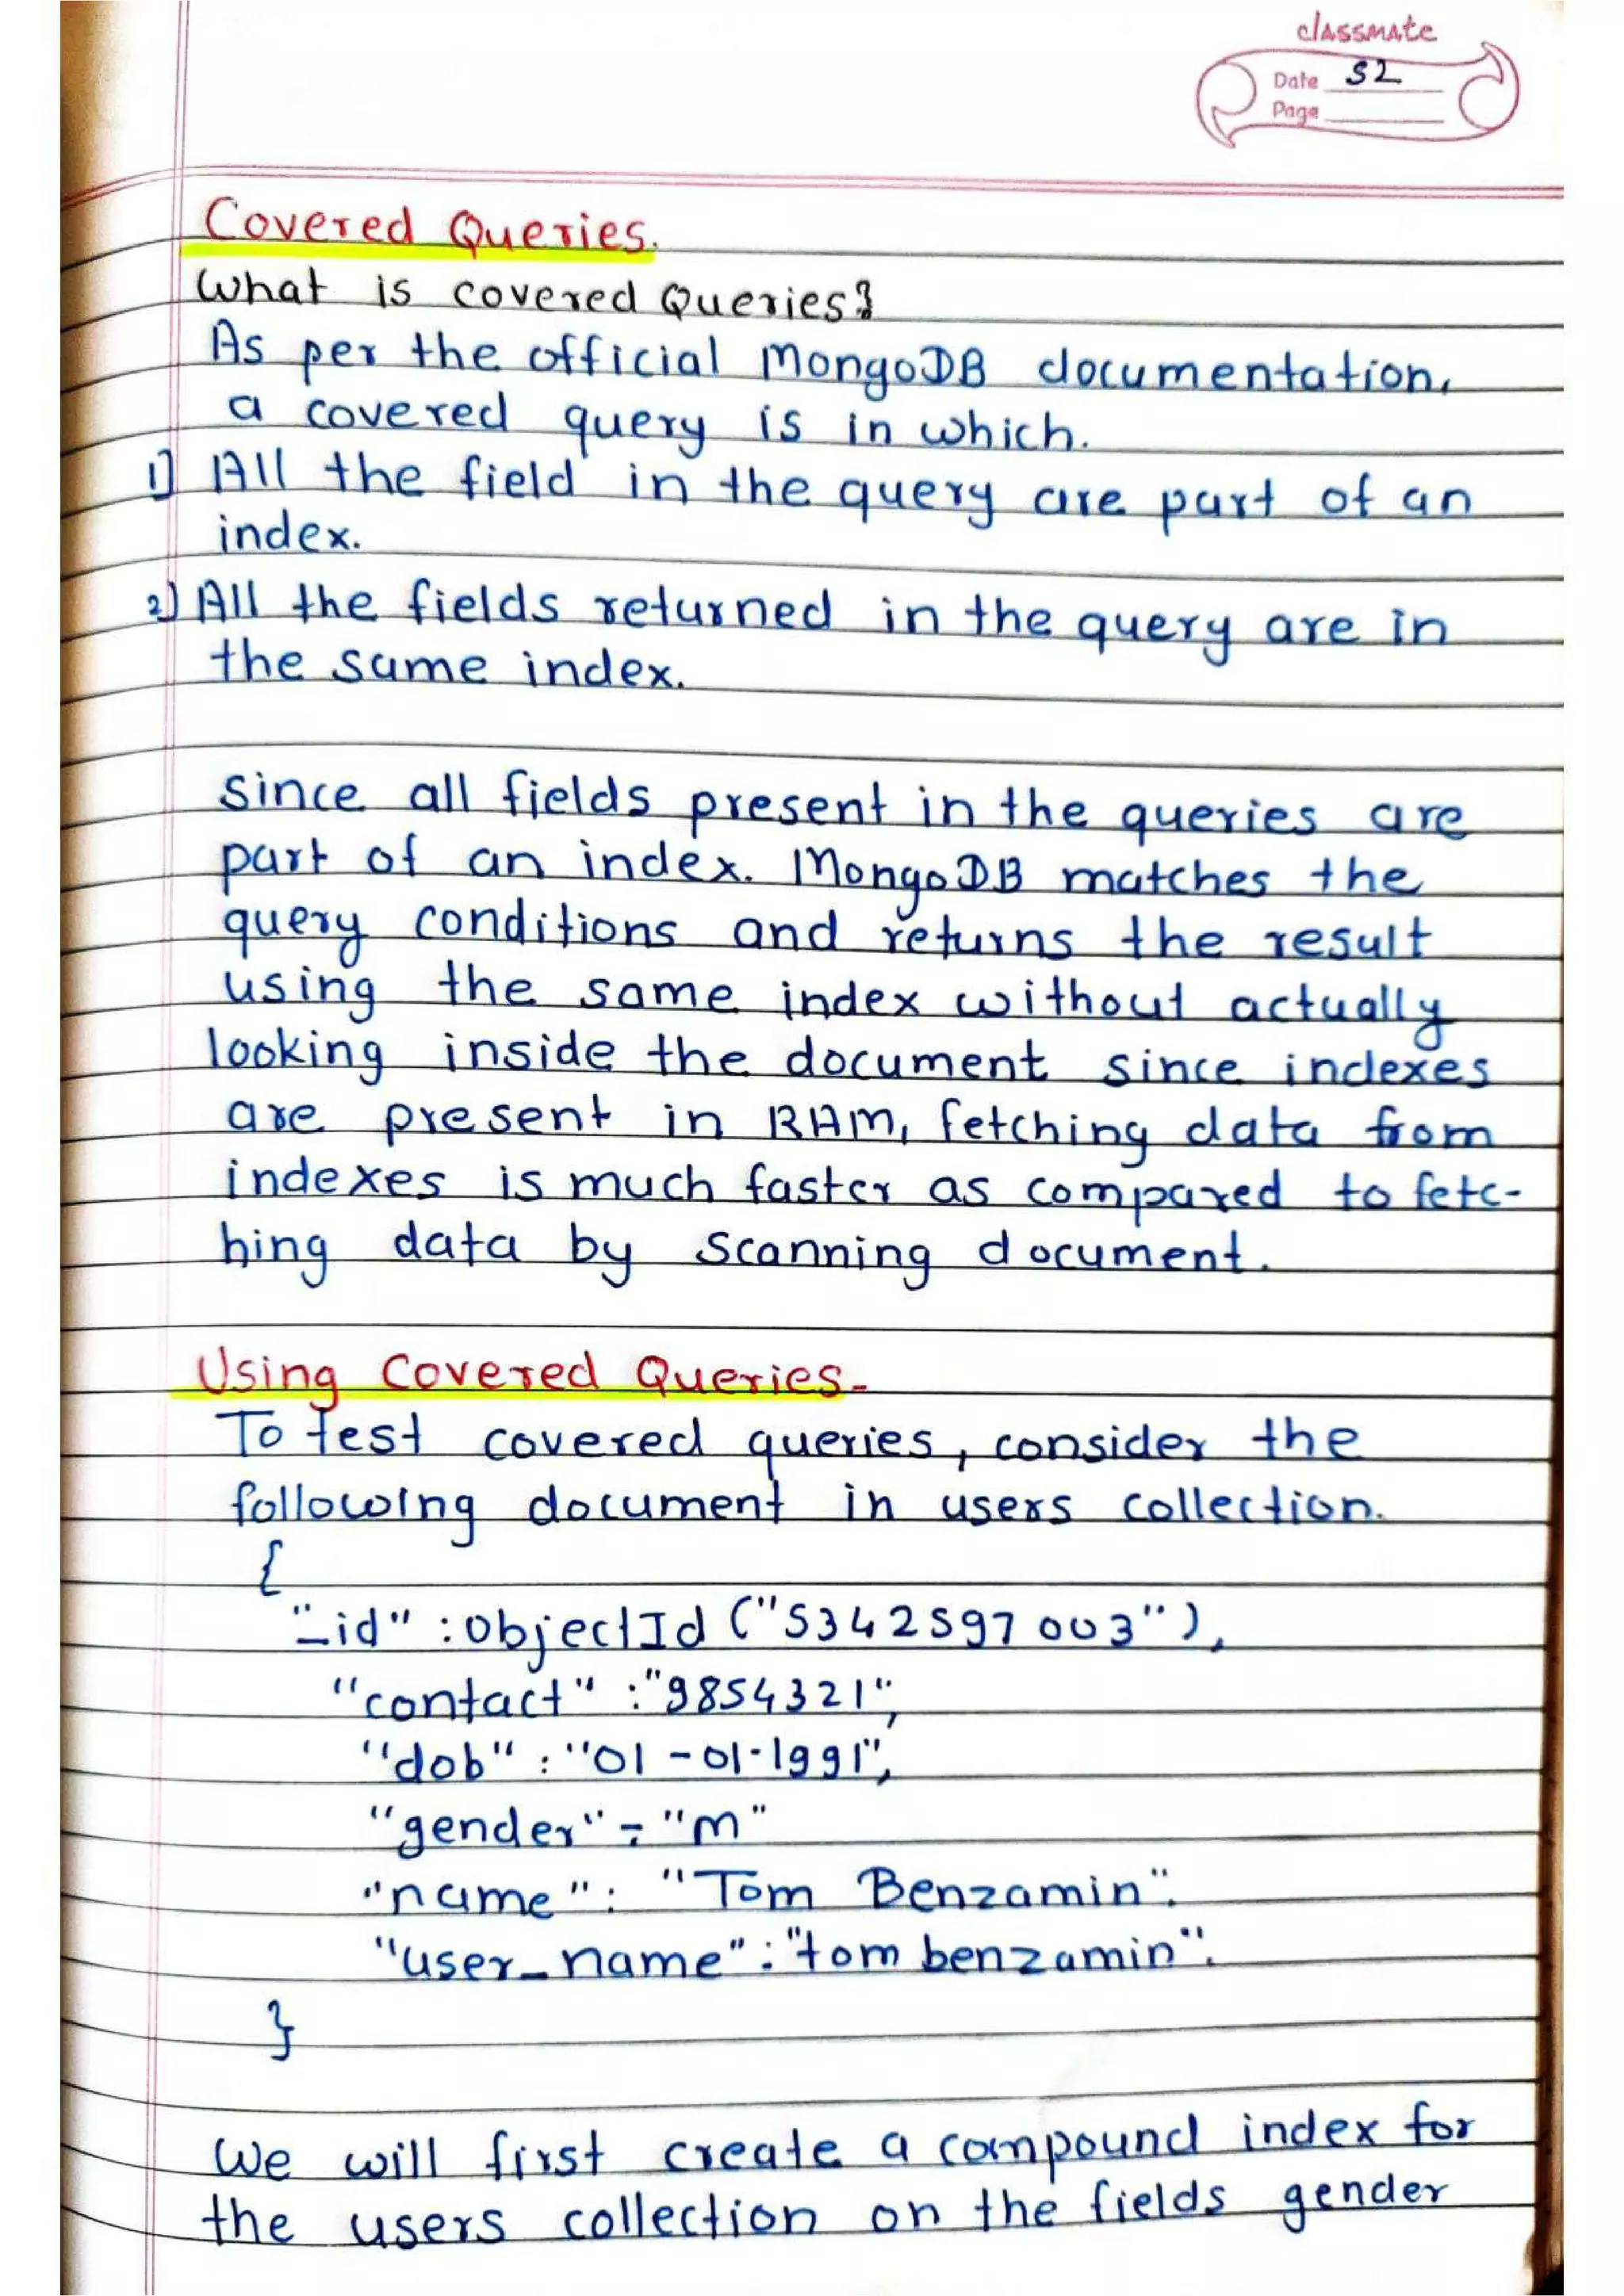 classmate
Date 52
Page
Covered Queries.
What is covered Queries?
As per the official MongoDB documentation,
a covered query is in which.
1) All the field in the query are part of an
index.
2) All the fields returned in the query are in
the same index.
Since all fields present in the queries are
part of an index. MongoDB matches the
query conditions and returns the result
using the same index without actually
looking inside the document since indexes
are present in RAM, fetching data from
indexes is much faster as compared to fetc-
hing data by scanning document.
Using Covered Queries-
To test covered queries, consider the
following document in users collection.
{
"_id" : objectId ("5342597003"),
"contact" : "9854321",
"dob" : "01-01-1991",
"gender" : "m"
"name" : "Tom Benzamin".
"user_name" : "tom benzamin".
}
We will first create a compound index for
the users collection on the fields gender